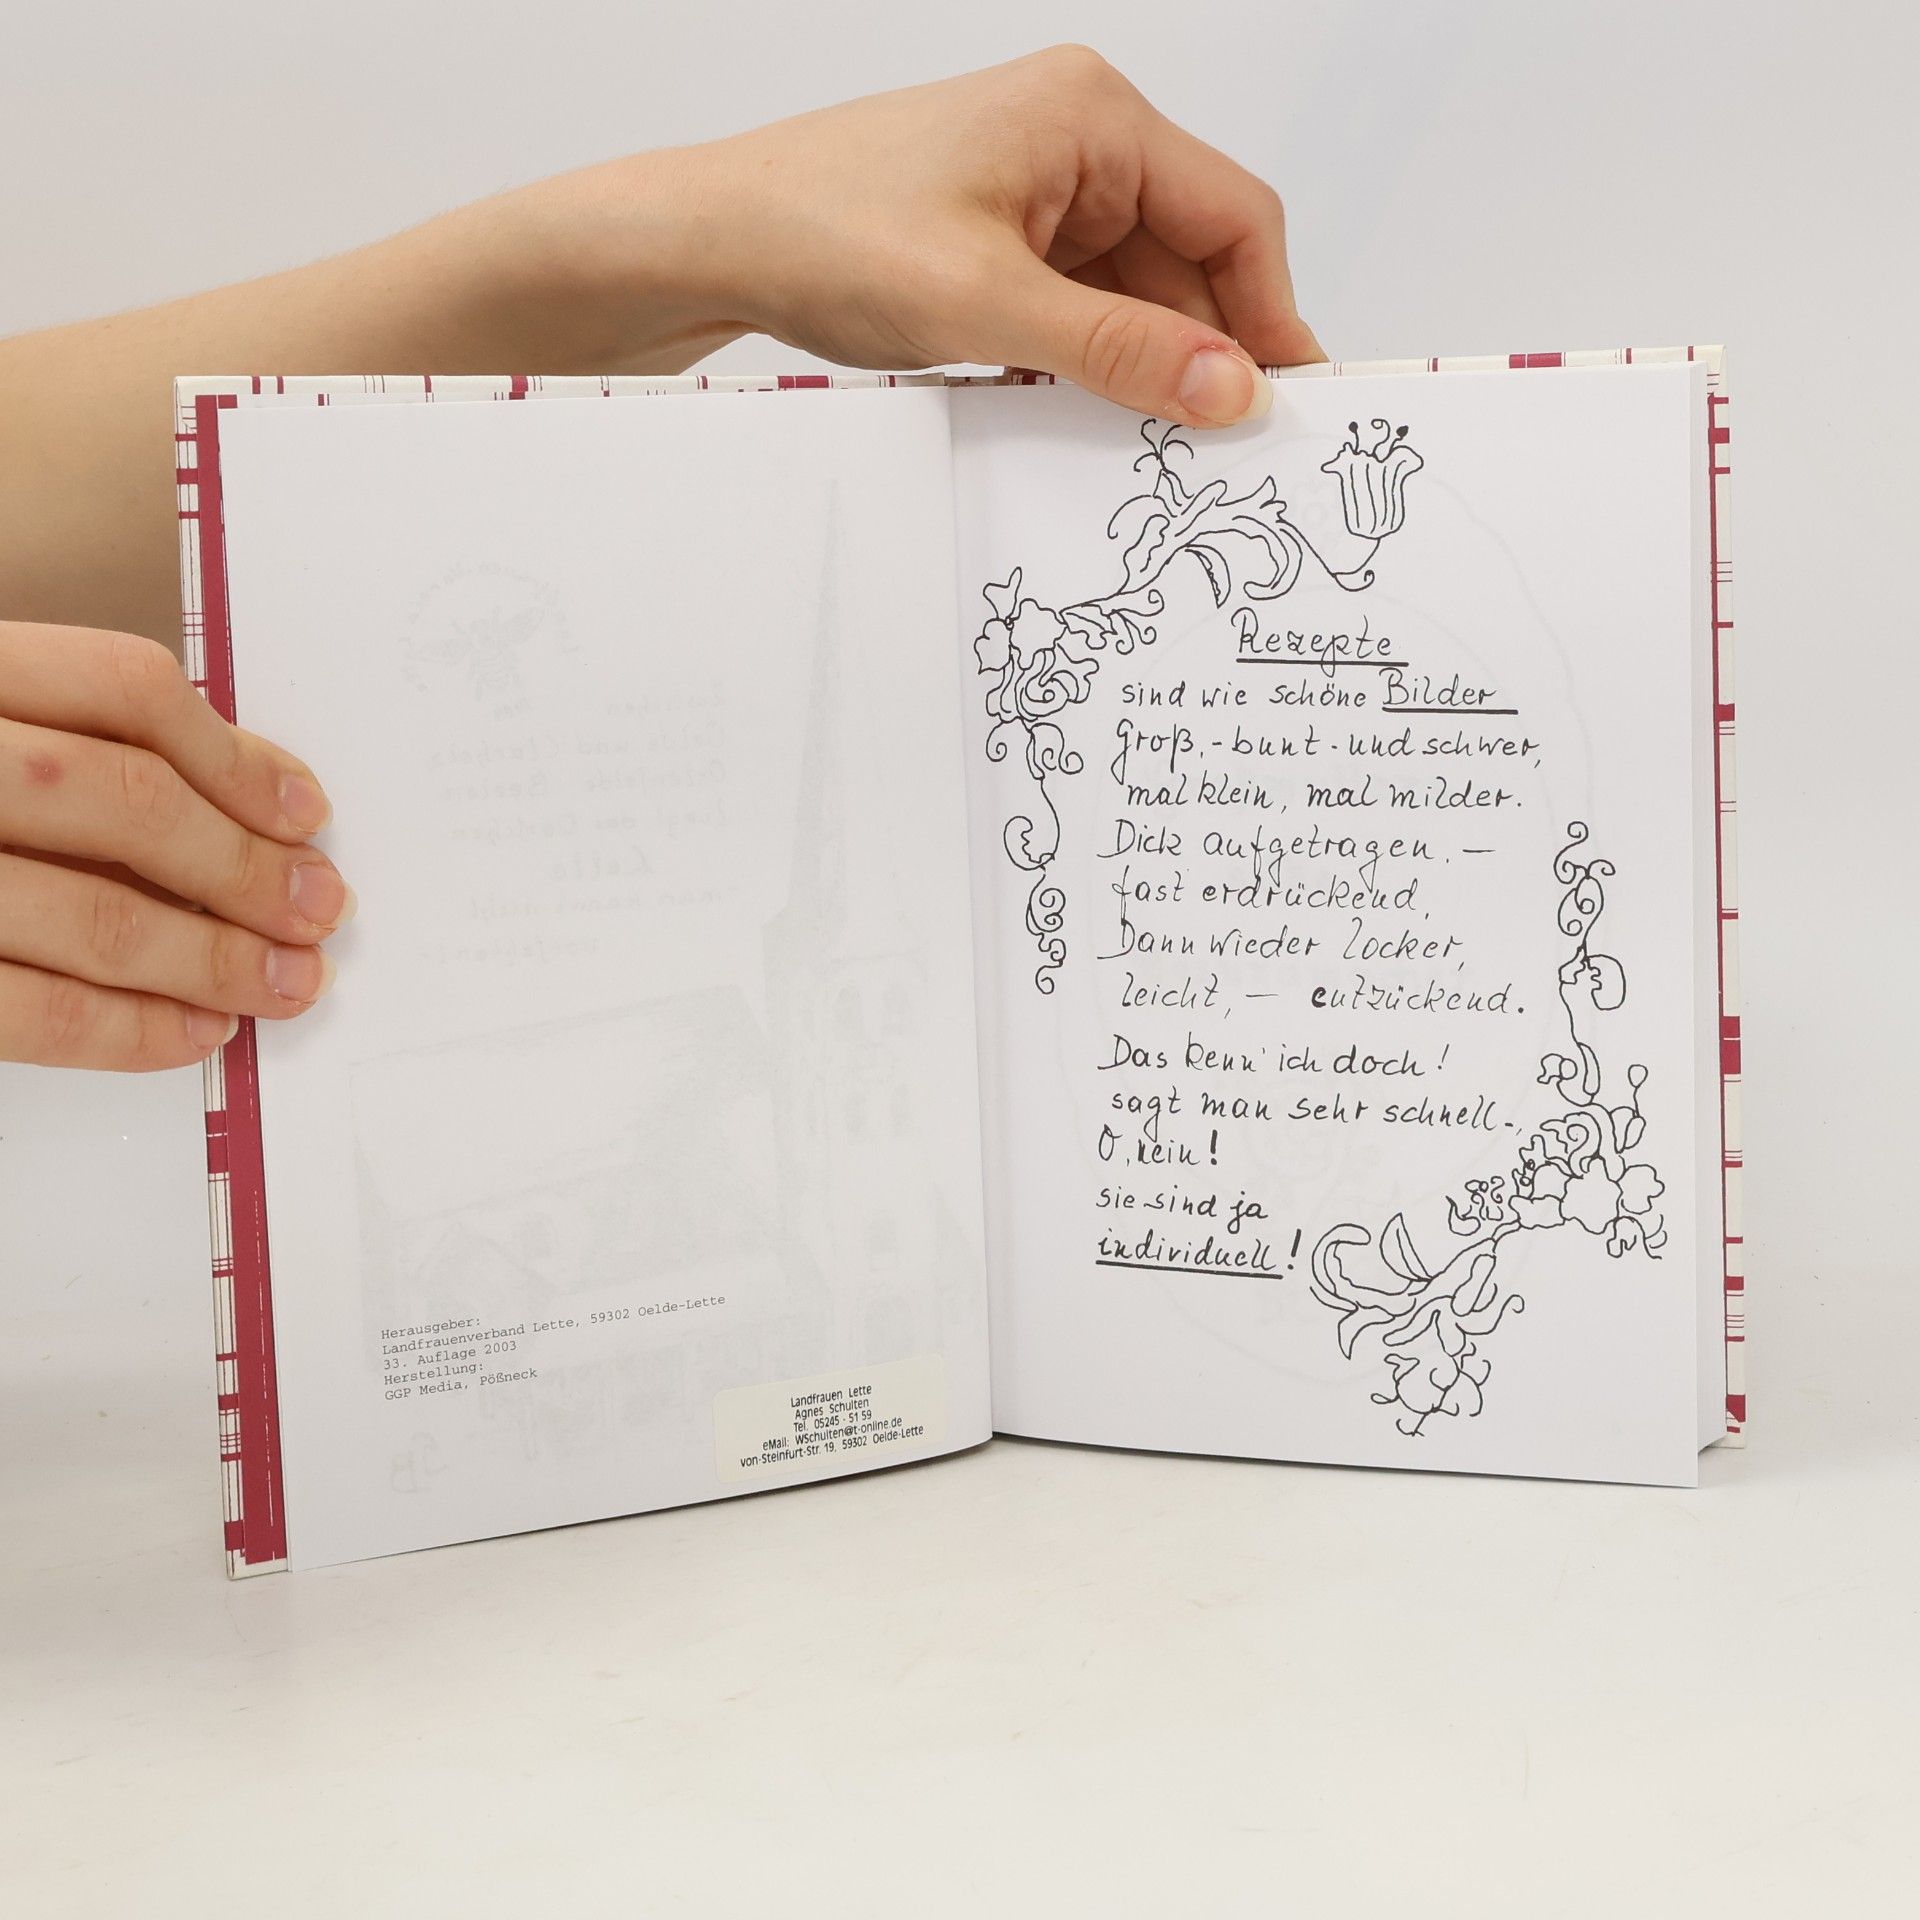 Herausgeber:
Landfrauenverband Lette, 59302 Oelde-Lette
33. Auflage 2003
Herstellung:
GGP Media, Pößneck
Landfrauen Lette
Agnes Schulten
Tel. 05245 - 51 59
eMail: WSchulten@t-online.de
von-Steinfurt-Str. 19, 59302 Oelde-Lette
Rezepte
sind wie schöne Bilder
Groß,- bunt - und schwer,
mal klein, mal milder.
Dick aufgetragen. —
fast erdrückend,
Dann wieder locker,
leicht, — entzückend.
Das kenn' ich doch!
sagt man sehr schnell-,
O, nein!
sie sind ja
individuell!